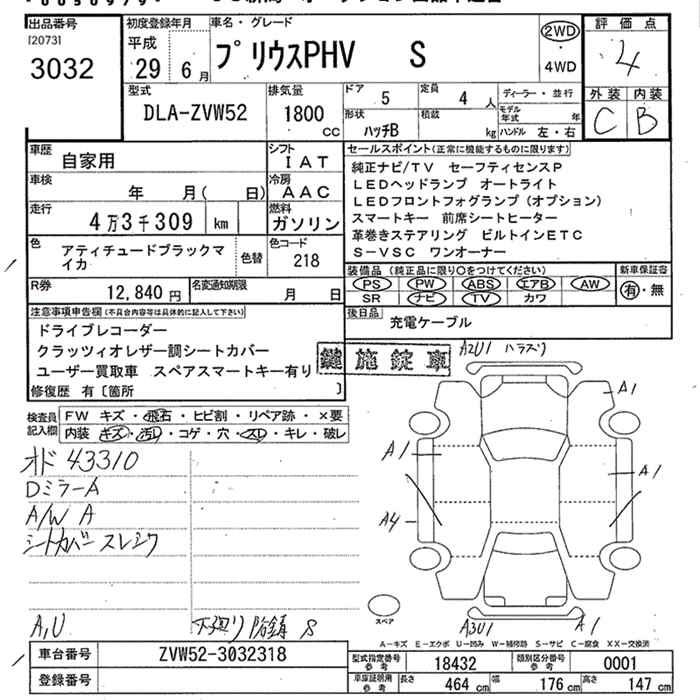 出品番号
[2073]
3032
初度登録年月
平成
29 6月
車名・グレード
プリウスPHV S
2WD
・
4WD
評価点
4
外装 内装
C B
型式
DLA-ZVW52
排気量
1800
cc
ドア
5
定員
4人
形状
ハッチB
積載
kg
ディーラー・並行
モデル年式 年
ハンドル 左・右
車歴
自家用
シフト
IAT
車検
年 月( 日)
冷房
AAC
走行
4万3千309 km
燃料
ガソリン
色
アティチュードブラックマイカ
色替
色コード
218
R券
12,840円
名変通知期限
月 日
セールスポイント(正常に機能するものに限ります)
純正ナビ/TV セーフティセンスP
LEDヘッドランプ オートライト
LEDフロントフォグランプ(オプション)
スマートキー 前席シートヒーター
革巻きステアリング ビルトインETC
S-VSC ワンオーナー
装備品(純正品に限り○をつけてください)
PS PW ABS エアB AW
SR ナビ TV カワ
新車保証書
有・無
後日品
充電ケーブル
注意事項申告欄(不具合内容等は具体的に記入して下さい)
ドライブレコーダー
クラッツィオレザー調シートカバー
ユーザー買取車 スペアスマートキー有り
修復歴 有〔箇所 〕
鍵施錠車
検査員記入欄
FW キズ・飛石・ヒビ割・リペア跡・×要
内装 キズ・汚レ・コゲ・穴・スレ・キレ・破レ
オド 43310
DミラーA
A/W A
シートカバースレシワ
A,U
下廻り防錆 S
A2U1 ハズリ
A1
A1
A1
A4
A3U1
A1
スペア
A-キズ E-エクボ U-凹み W-補修跡 S-サビ C-腐食 XX-交換済
車台番号
ZVW52-3032318
登録番号
型式指定番号
参考
18432
類別区分番号
参考
0001
車庫証明用
参考
長さ
464 cm
幅
176 cm
高さ
147 cm